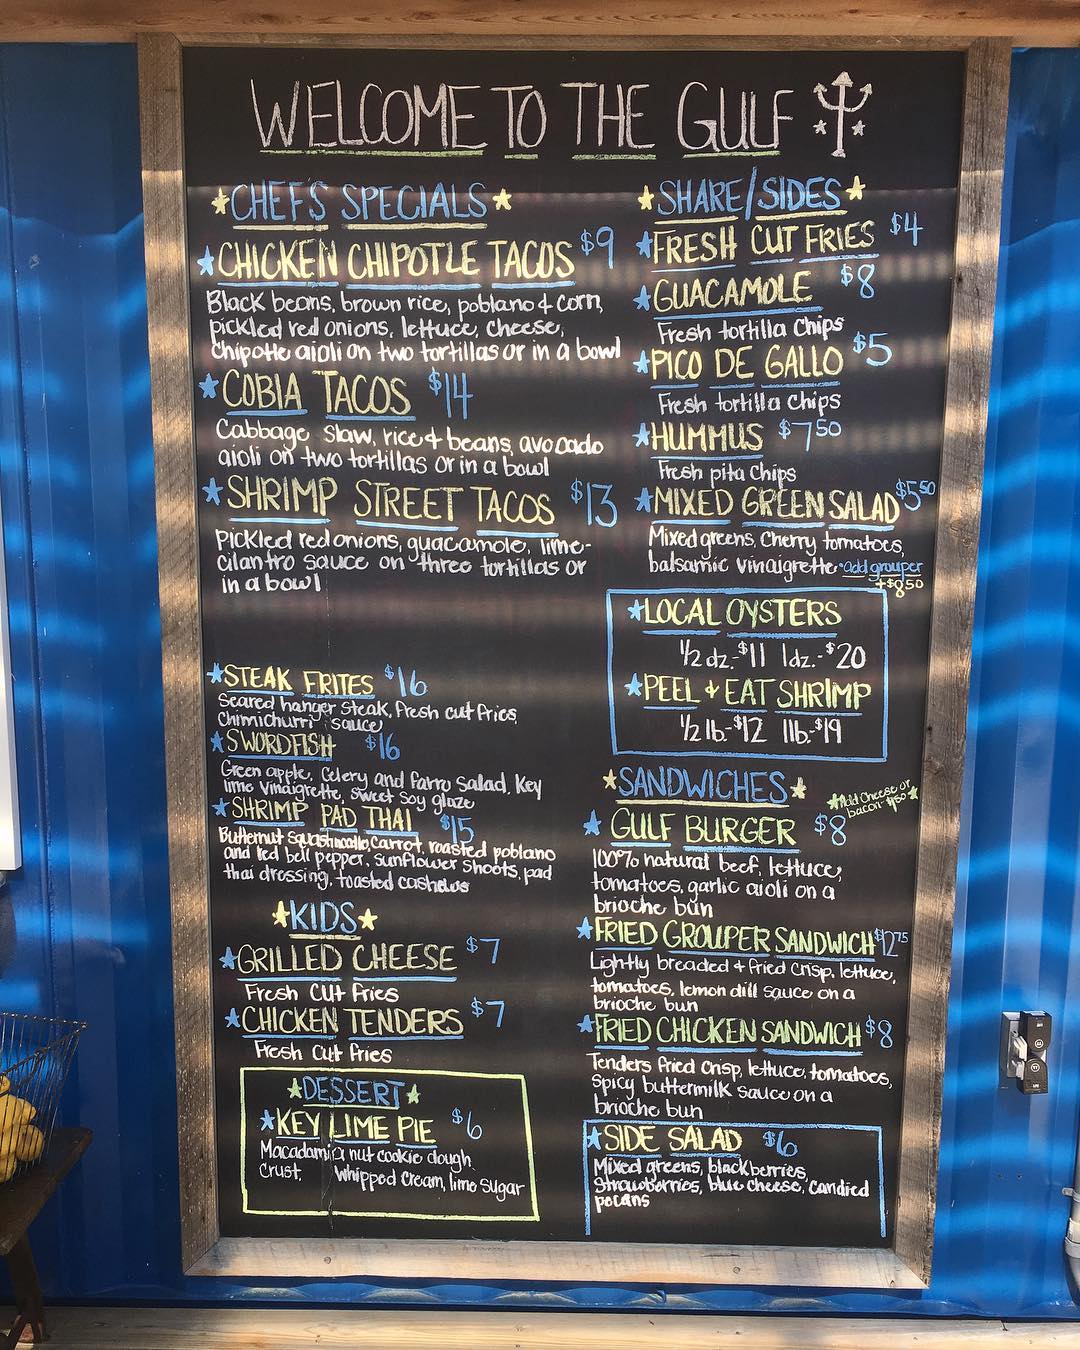 WELCOME TO THE GULF
CHEF'S SPECIALS
CHICKEN CHIPOTLE TACOS $9
Black beans, brown rice, poblano & corn,
pickled red onions, lettuce, cheese,
Chipotle aioli on two tortillas or in a bowl
COBIA TACOS $14
Cabbage slaw, rice & beans, avocado
aioli on two tortillas or in a bowl
SHRIMP STREET TACOS $13
Pickled red onions, guacamole, lime-
cilantro sauce on three tortillas or
in a bowl
STEAK FRITES $16
Seared hanger steak, fresh cut fries,
Chimichurri sauce
SWORDFISH $16
Green apple, Celery and farro salad, Key
lime vinaigrette, sweet soy glaze
SHRIMP PAD THAI $15
Butternut squash noodle, carrot, roasted poblano
and red bell pepper, sunflower shoots, pad
thai dressing, toasted cashews
KIDS
GRILLED CHEESE $7
Fresh cut fries
CHICKEN TENDERS $7
Fresh cut fries
DESSERT
KEY LIME PIE $6
Macadamia nut cookie dough
Crust, whipped cream, lime sugar
SHARE/SIDES
FRESH CUT FRIES $4
GUACAMOLE $8
Fresh tortilla chips
PICO DE GALLO $5
Fresh tortilla chips
HUMMUS $7.50
Fresh pita chips
MIXED GREEN SALAD $5.50
Mixed greens, Cherry tomatoes,
balsamic vinaigrette •add grouper
+$8.50
LOCAL OYSTERS
1/2 dz.-$11 1dz.-$20
PEEL & EAT SHRIMP
1/2 lb-$12 1lb-$19
SANDWICHES
Add cheese or
bacon $1.50
GULF BURGER $8
100% natural beef, lettuce,
tomatoes, garlic aioli on a
brioche bun
FRIED GROUPER SANDWICH $12.75
Lightly breaded & fried crisp, lettuce,
tomatoes, lemon dill sauce on a
brioche bun
FRIED CHICKEN SANDWICH $8
Tenders fried crisp, lettuce, tomatoes,
spicy buttermilk sauce on a
brioche bun
SIDE SALAD $6
Mixed greens, blackberries,
Strawberries, blue cheese, candied
pecans